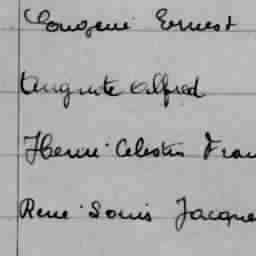 Eugène Ernest
Auguste Alfred
Henri Célestin Fran
René Louis Jacque